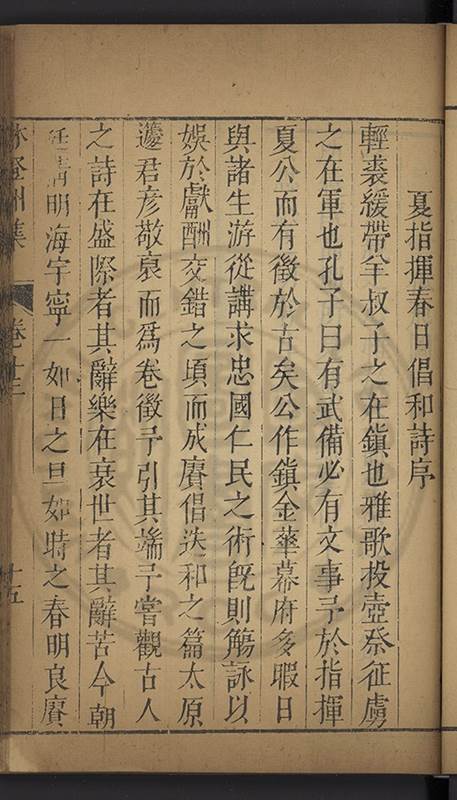 夏指揮春日倡和詩序
輕裘緩帶羊叔子之在鎮也雅歌投壺祭征虜
之在軍也孔子曰有武備必有文事予於指揮
夏公而有徵於古矣公作鎮金華幕府多暇日
與諸生游從講求忠國仁民之術旣則觴詠以
娛於獻酬交錯之頃而成賡倡迭和之篇太原
君彦敬裒而爲卷徵予引其端予嘗觀古人
之詩在盛際者其辭樂在衰世者其辭苦今朝
廷清明海宇寧一如日之旦如時之春明良賡
登州集
卷十三
十五